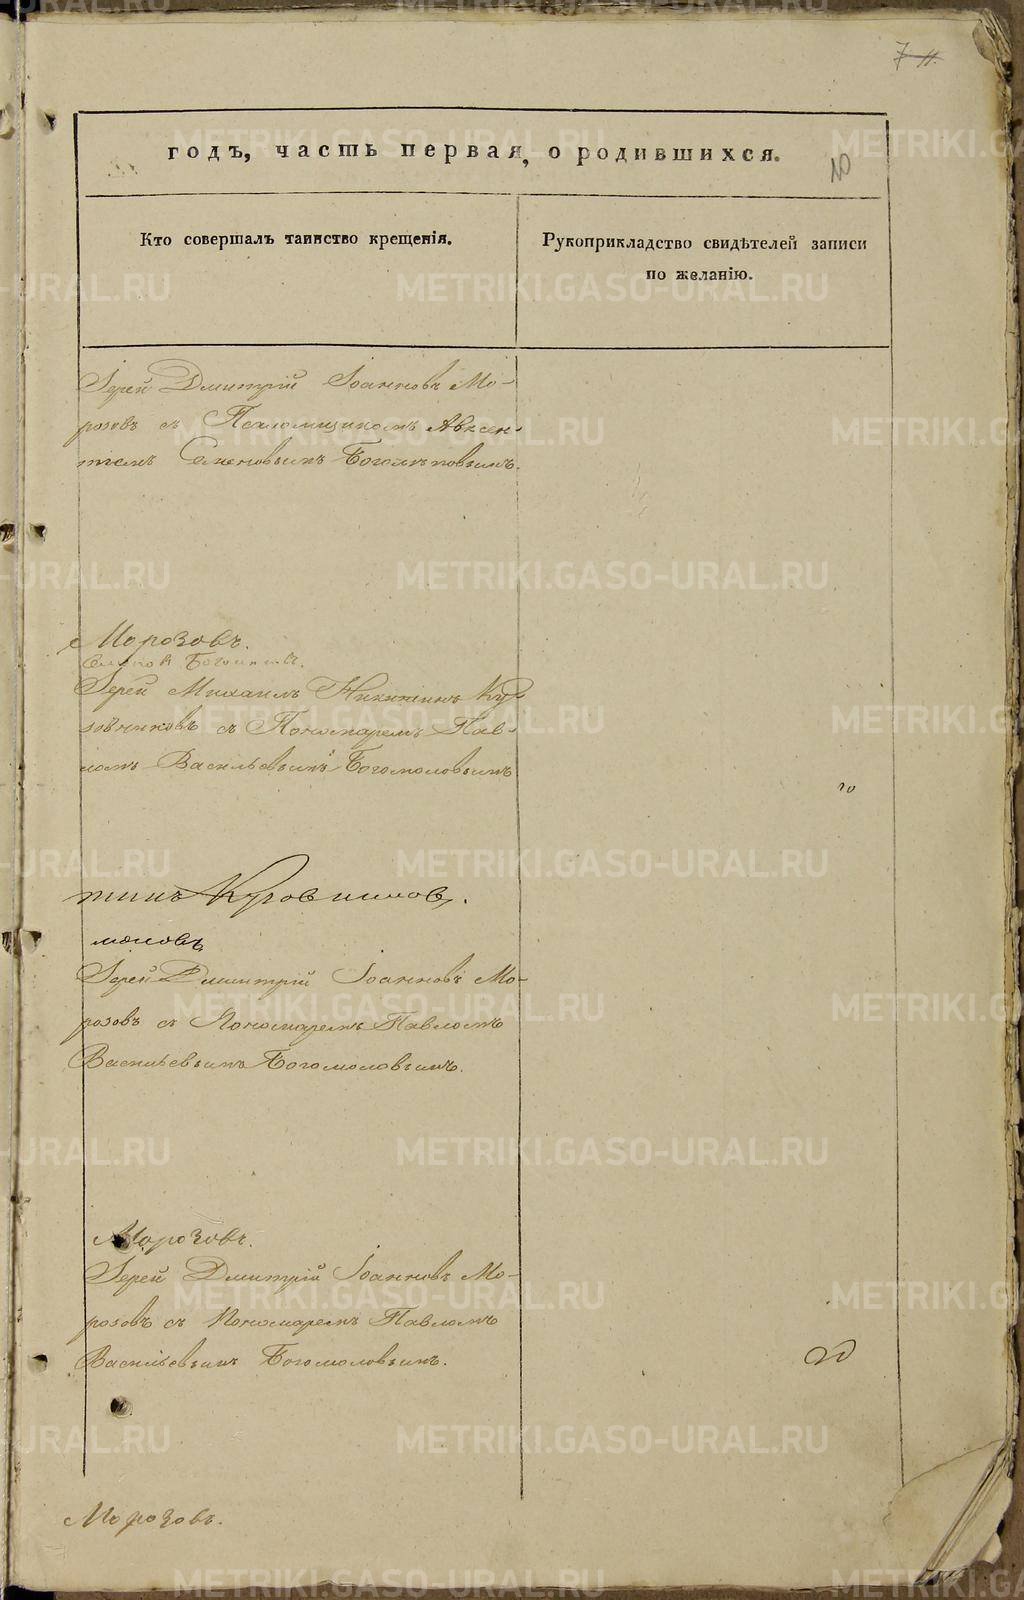 7 11.
годъ, часть первая, о родившихся.
10
Кто совершалъ таинство крещенія.
Рукоприкладство свидѣтелей записи
по желанію.
Іерей Дмитрій Іоанновъ Мо-
розовъ съ Псаломщикомъ Авксен-
тіемъ Семеновымъ Боголѣповымъ.
Морозовъ.
Іерей Михаилъ Никитинъ Ку-
зовниковъ съ Пономаремъ Пав-
ломъ Васильевымъ Богомоловымъ
тинъ
моловъ
Іерей Дмитрій Іоанновъ Мо-
розовъ съ Пономаремъ Павломъ
Васильевымъ Богомоловымъ.
Морозовъ.
Іерей Дмитрій Іоанновъ Мо-
розовъ съ Пономаремъ Павломъ
Васильевымъ Богомоловымъ.
Морозовъ.
METRIKI.GASO-URAL.RU